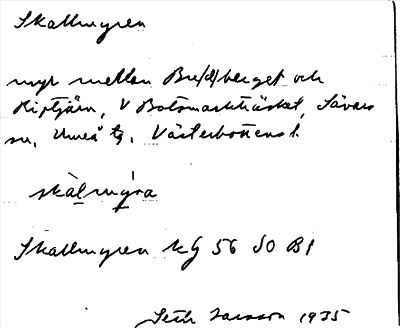 Skallmyren
myr mellan Bre(d)berget och
Riptjärn, V Botsmarkträsket, Sävars
sn, Umeå tg, Västerbottens l.
skàlmy̕ra
Skallmyren kG 56 SO B1
Seth Larsson 1935